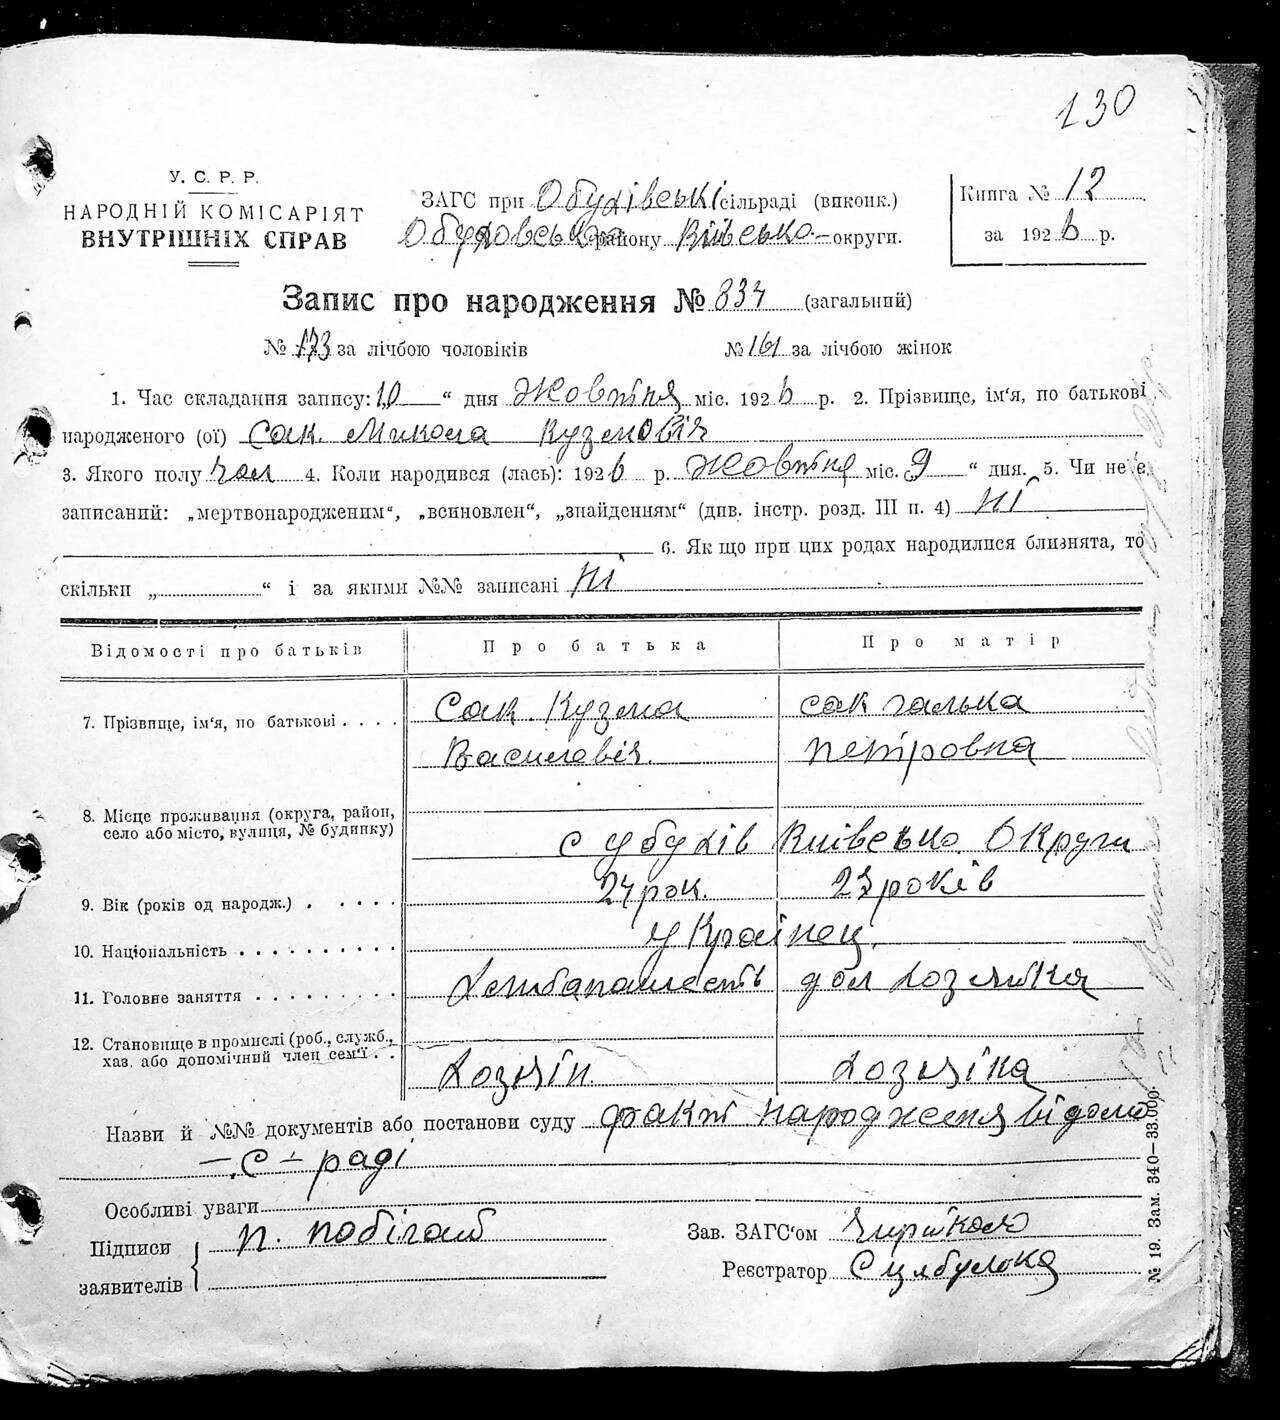 130
У. С. Р. Р.
НАРОДНІЙ КОМІСАРІЯТ
ВНУТРІШНІХ СПРАВ
ЗАГС при Обухівські сільраді (виконк.)
Обуховська району Київсько округи.
Книга № 12
за 1926 р.
Запис про народження № 834 (загальний)
№ 173 за лічбою чоловіків № 161 за лічбою жінок
1. Час складання запису: 10 “ дня Жовтня міс. 1926 р. 2. Прізвище, ім‘я, по батькові
народженого (ої) Сак Микола Кузмовіч
3. Якого полу чол 4. Коли народився (лась): 1926 р. Жовтня міс. 9 “ дня. 5. Чи не є
записаний: „мертвонародженим“, „всиновлен“, „знайденням“ (див. інстр. розд. III п. 4) ні
6. Як що при цих родах народилися близнята, то
скільки „ “ і за якими №№ записані ні
Відомості про батьків Про батька Про матір
7. Прізвище, ім‘я, по батькові . . . . Сак Кузма сак галька
Василовіч петровна
8. Місце проживання (округа, район,
село або місто, вулиця, № будинку) с Убухів Київсько Округи
9. Вік (років од народж.) . . . . . 24 рок. 23 років
10. Національність . . . . . . . . . . Украінец.
11. Головне заняття . . . . . . . . . хлибапашесть дом хозяйка
12. Становище в промислі (роб., служб.,
хаз. або допомічний член сем‘ї . . хозяін хозяіка
Назви й №№ документів або постанови суду факт народженя відомо
– с – раді
Особливі уваги
Підписи
заявителів
п. побігай
Зав. ЗАГС‘ом
Реєстратор С цибулька
№ 19. Зам. 340—33.000.